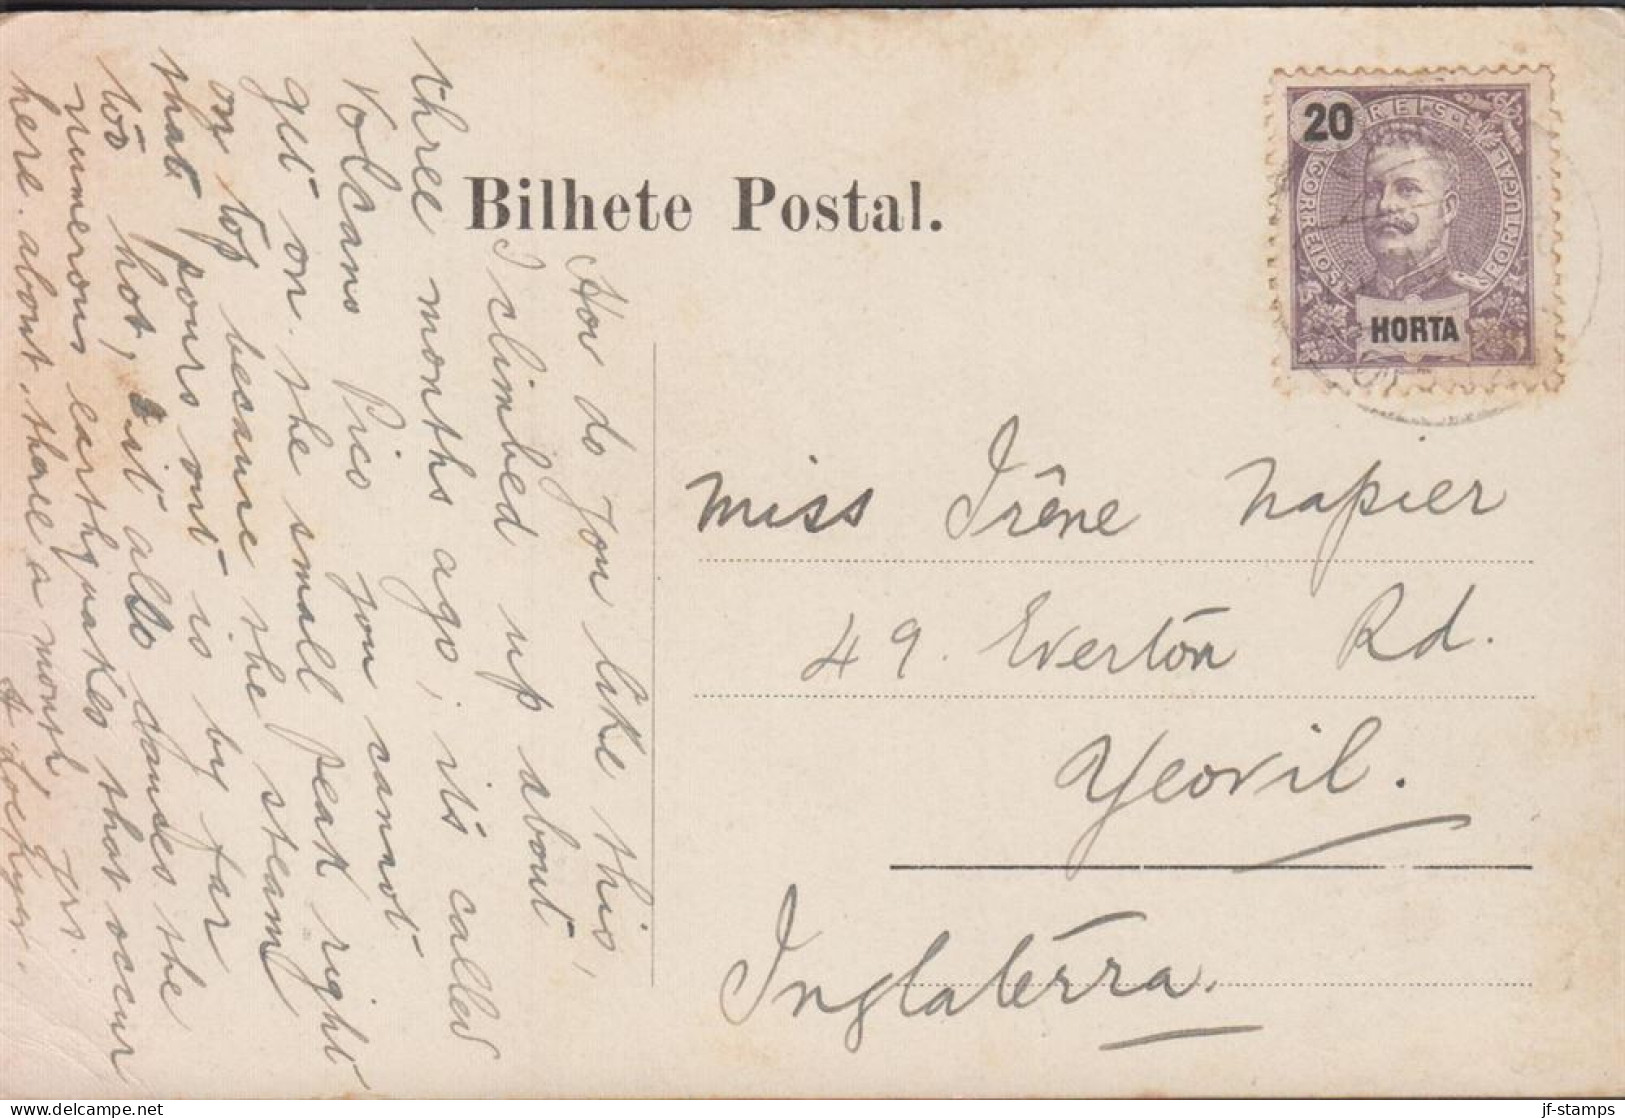 Bilhete Postal.
20
REIS
CORREIOS
PORTUGAL
HORTA
How do you like this,
I climbed up about
three months ago, it's called
Volcano Pico you cannot
get on the small peak right
on top because the steam
that pours out is by far
too hot, it also causes the
numerous earthquakes that occur
here. about three a month yrs.
Miss Irêne Napier
49. Everton Rd.
Yeovil.
Inglaterra.
jf-stamps